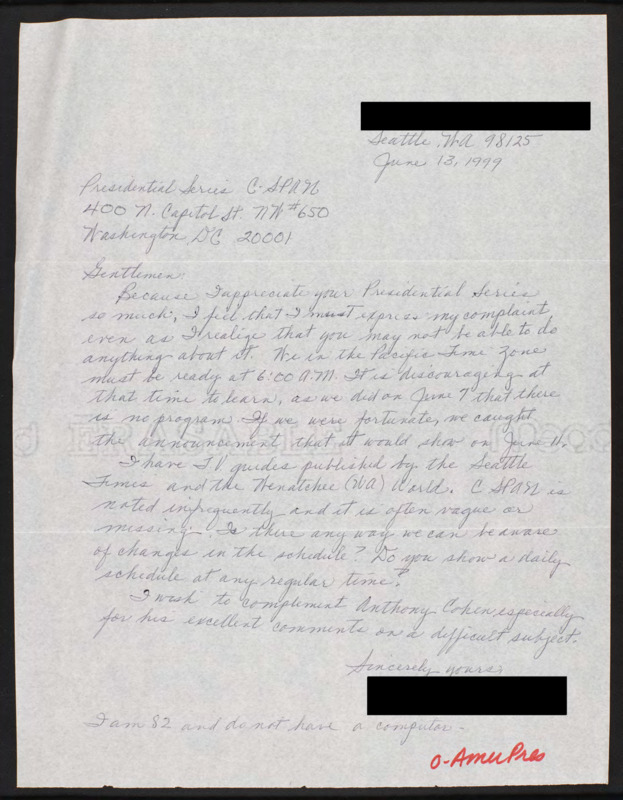 Seattle, WA 98125
June 13, 1999
Presidential Series C-SPAN
400 N. Capitol St. NW #650
Washington, DC 20001
Gentlemen:
Because I appreciate your Presidential Series
so much, I feel that I must express my complaint
even as I realize that you may not be able to do
anything about it. We in the Pacific Time Zone
must be ready at 6:00 A.M. It is discouraging at
that time to learn, as we did on June 7 that there
is no program. If we were fortunate, we caught
the announcement that it would show on June 11.
I have T.V. guides published by the Seattle
Times and the Wenatchee (WA) World. C SPAN is
noted infrequently and it is often vague or
missing. Is there any way we can be aware
of changes in the schedule? Do you show a daily
schedule at any regular time?
I wish to complement Anthony Cohen, especially
for his excellent comments on a difficult subject.
Sincerely yours,
I am 82 and do not have a computer.
O-AmerPres